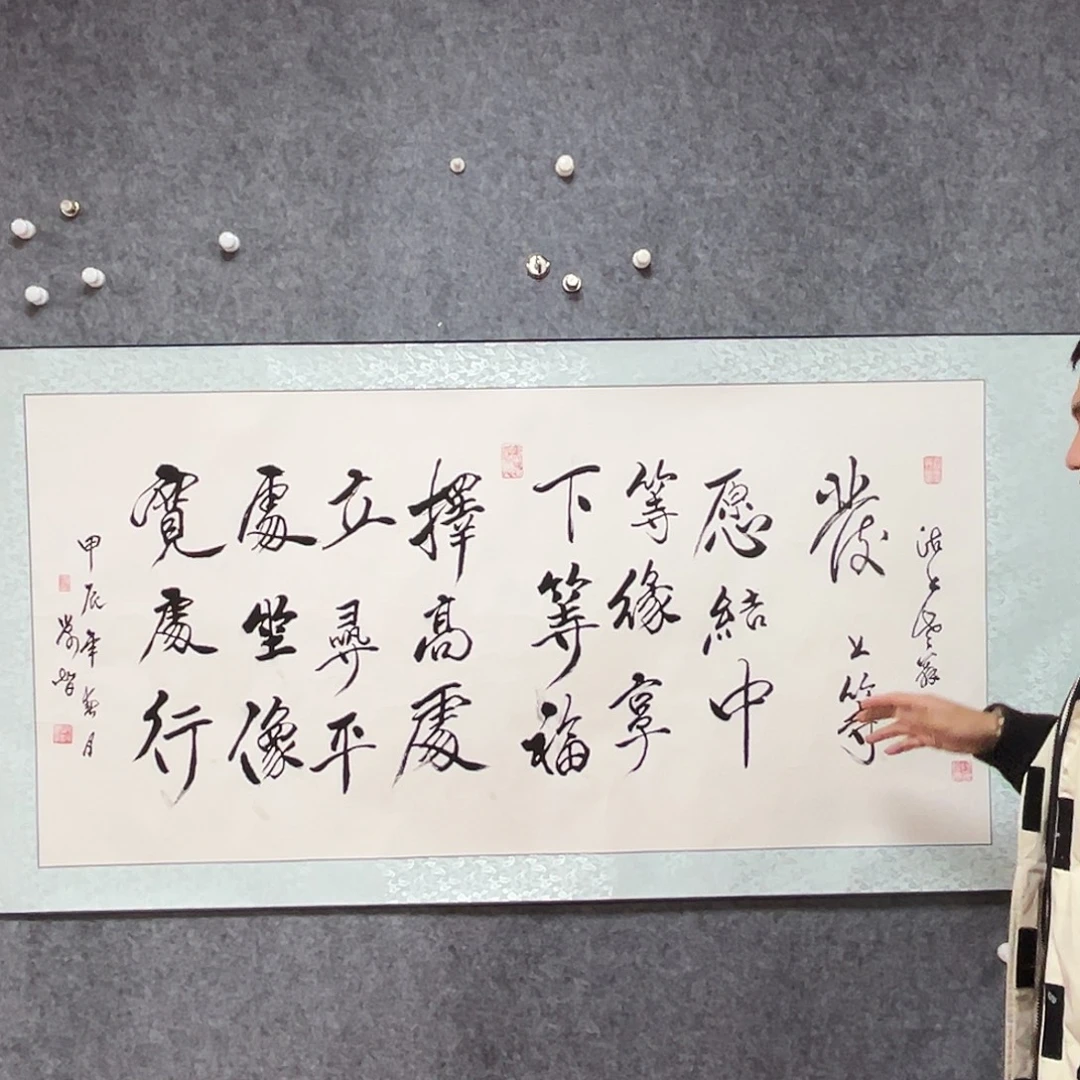 發上等
愿結中
等緣享
下等福
擇高處
立尋平
處坐像
寬處行
甲辰年 月